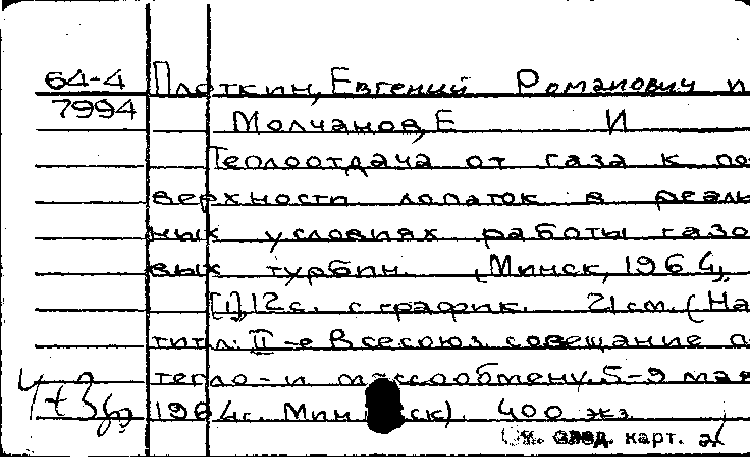 64-4 Плоткин, Евгений Романович и
7994
Молчанов, Е И
Теплоотдача от газа к по
верхности лопаток в реаль
ных условиях работы газо
вых турбин. [Минск, 1964].
[1], 12 с. с график. 21 см. (На
титл: II-е Всесоюз совещание о
тепло- и массообмену. 5-9 мая
1964г. Минск). 400 экз.
См. след. карт.